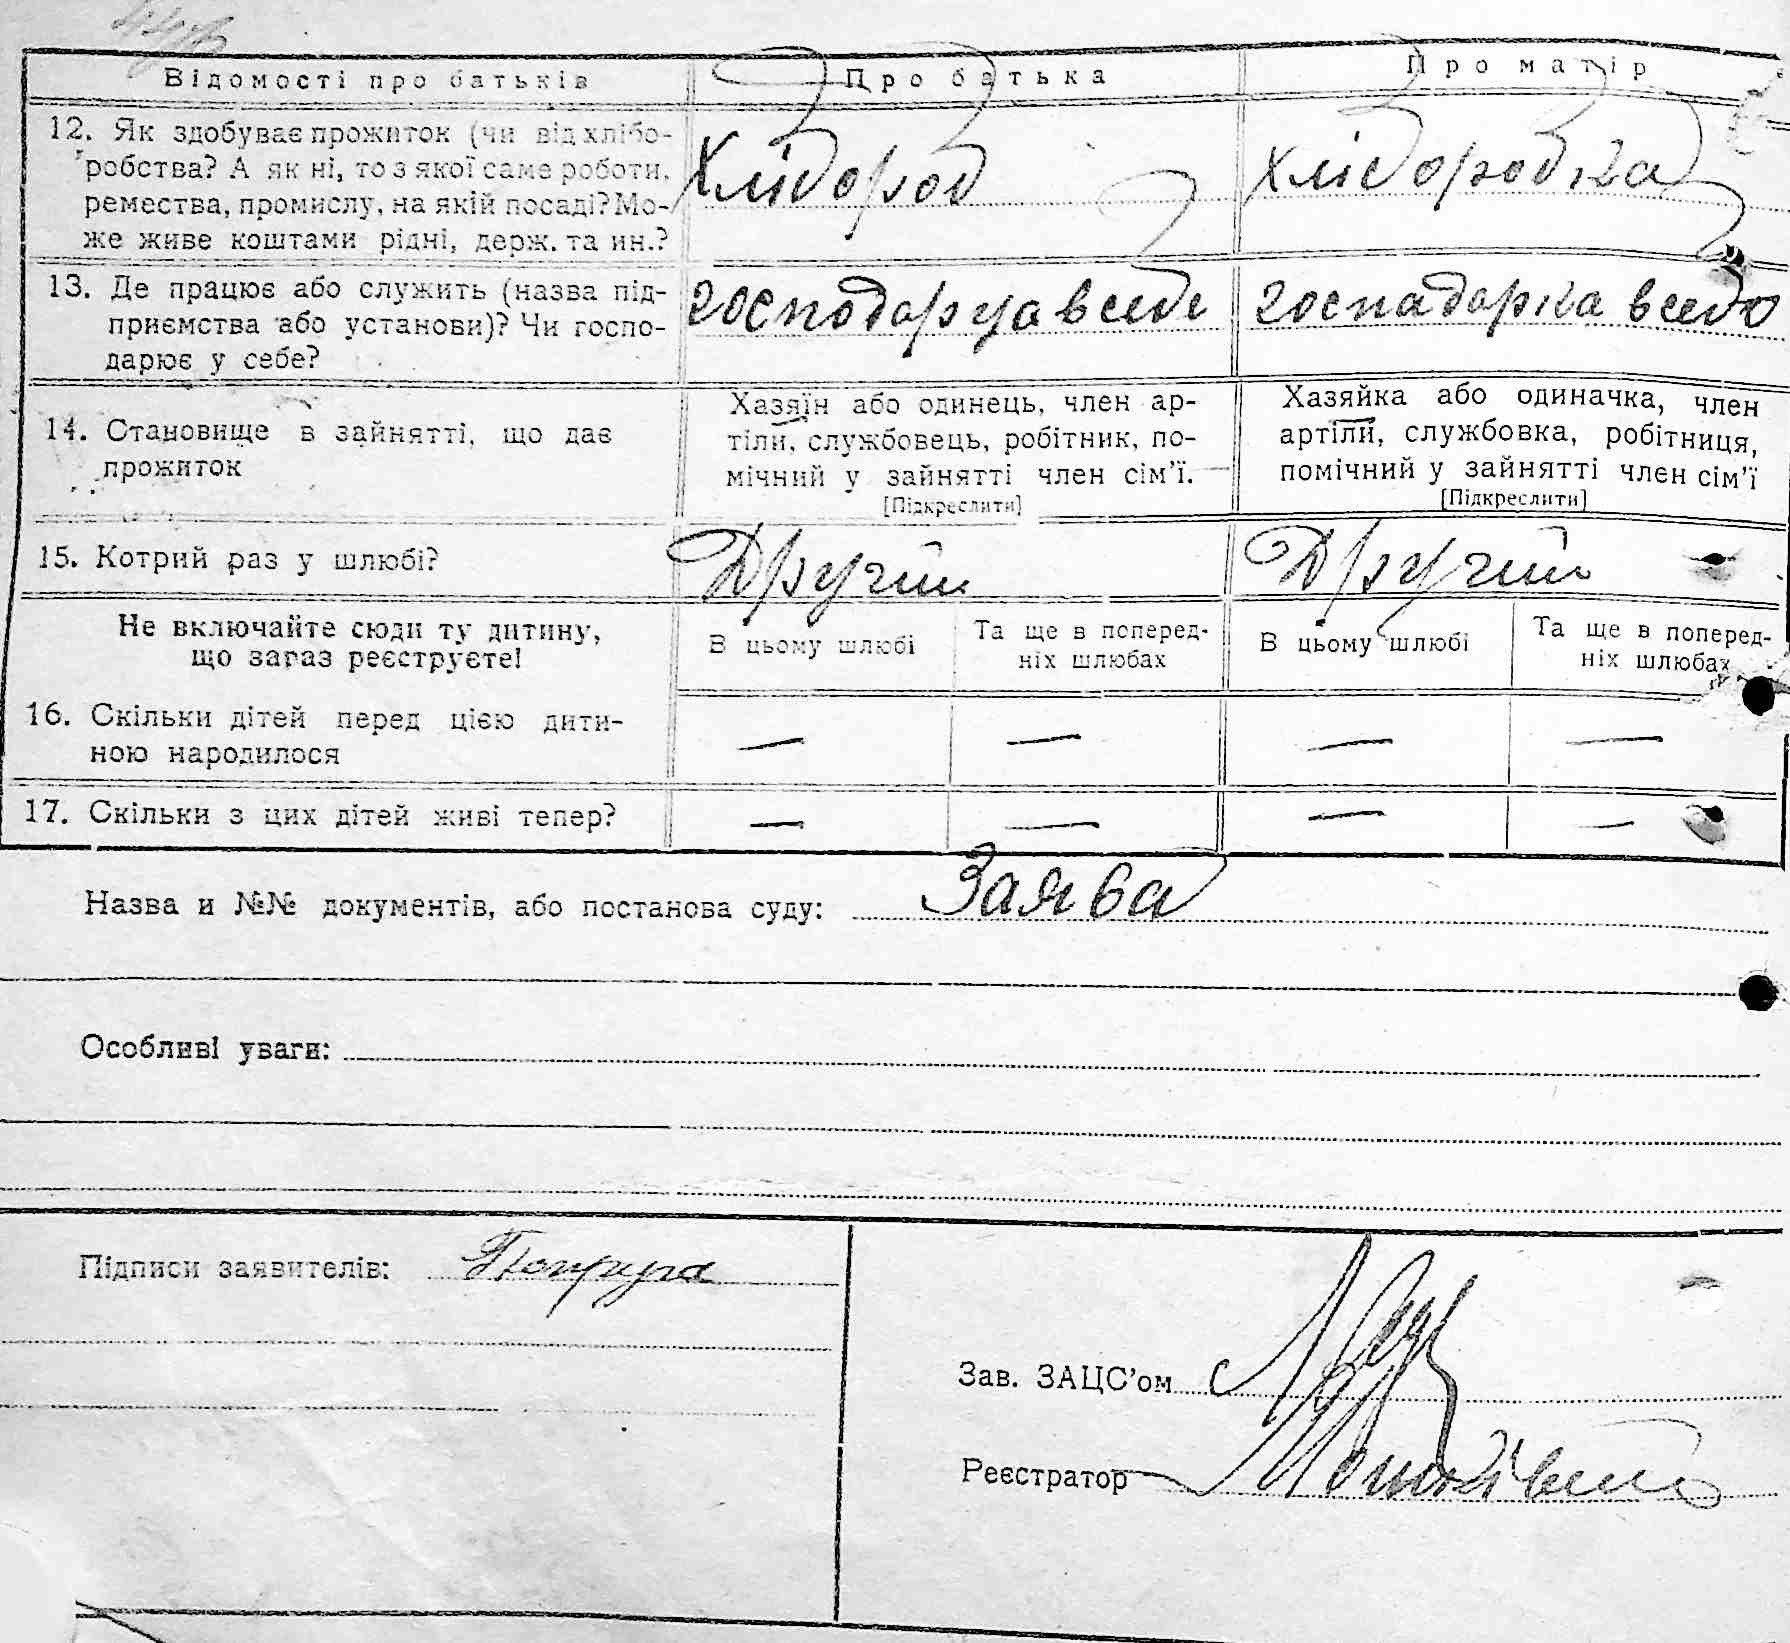 Відомості про батьків
Про батька
Про матір
12. Як здобуває прожиток (чи від хлібо-
робства? А як ні, то з якої саме роботи,
ремества, промислу, на якій посаді? Мо-
же живе коштами рідні, держ. та ин.?
Хлібороб
хліборобка
13. Де працює або служить (назва під-
приємства або установи)? Чи госпо-
дарює у себе?
господарує в себе
14. Становище в зайнятті, що дає
прожиток
Хазяїн або одинець, член ар-
тіли, службовець, робітник, по-
мічний у зайнятті член сім'ї.
[Підкреслити]
Хазяйка або одиначка, член
артіли, службовка, робітниця,
помічний у зайнятті член сім'ї
[Підкреслити]
15. Котрий раз у шлюбі?
Другий
Другий
Не включайте сюди ту дитину,
що зараз реєструєте!
В цьому шлюбі
Та ще в поперед-
ніх шлюбах
В цьому шлюбі
Та ще в поперед-
ніх шлюбах
16. Скільки дітей перед цією дити-
ною народилося
— — — —
17. Скільки з цих дітей живі тепер?
— — — —
Назва и №№ документів, або постанова суду: Заява
Особливі уваги:
Підписи заявителів:
Зав. ЗАЦС'ом
Реєстратор